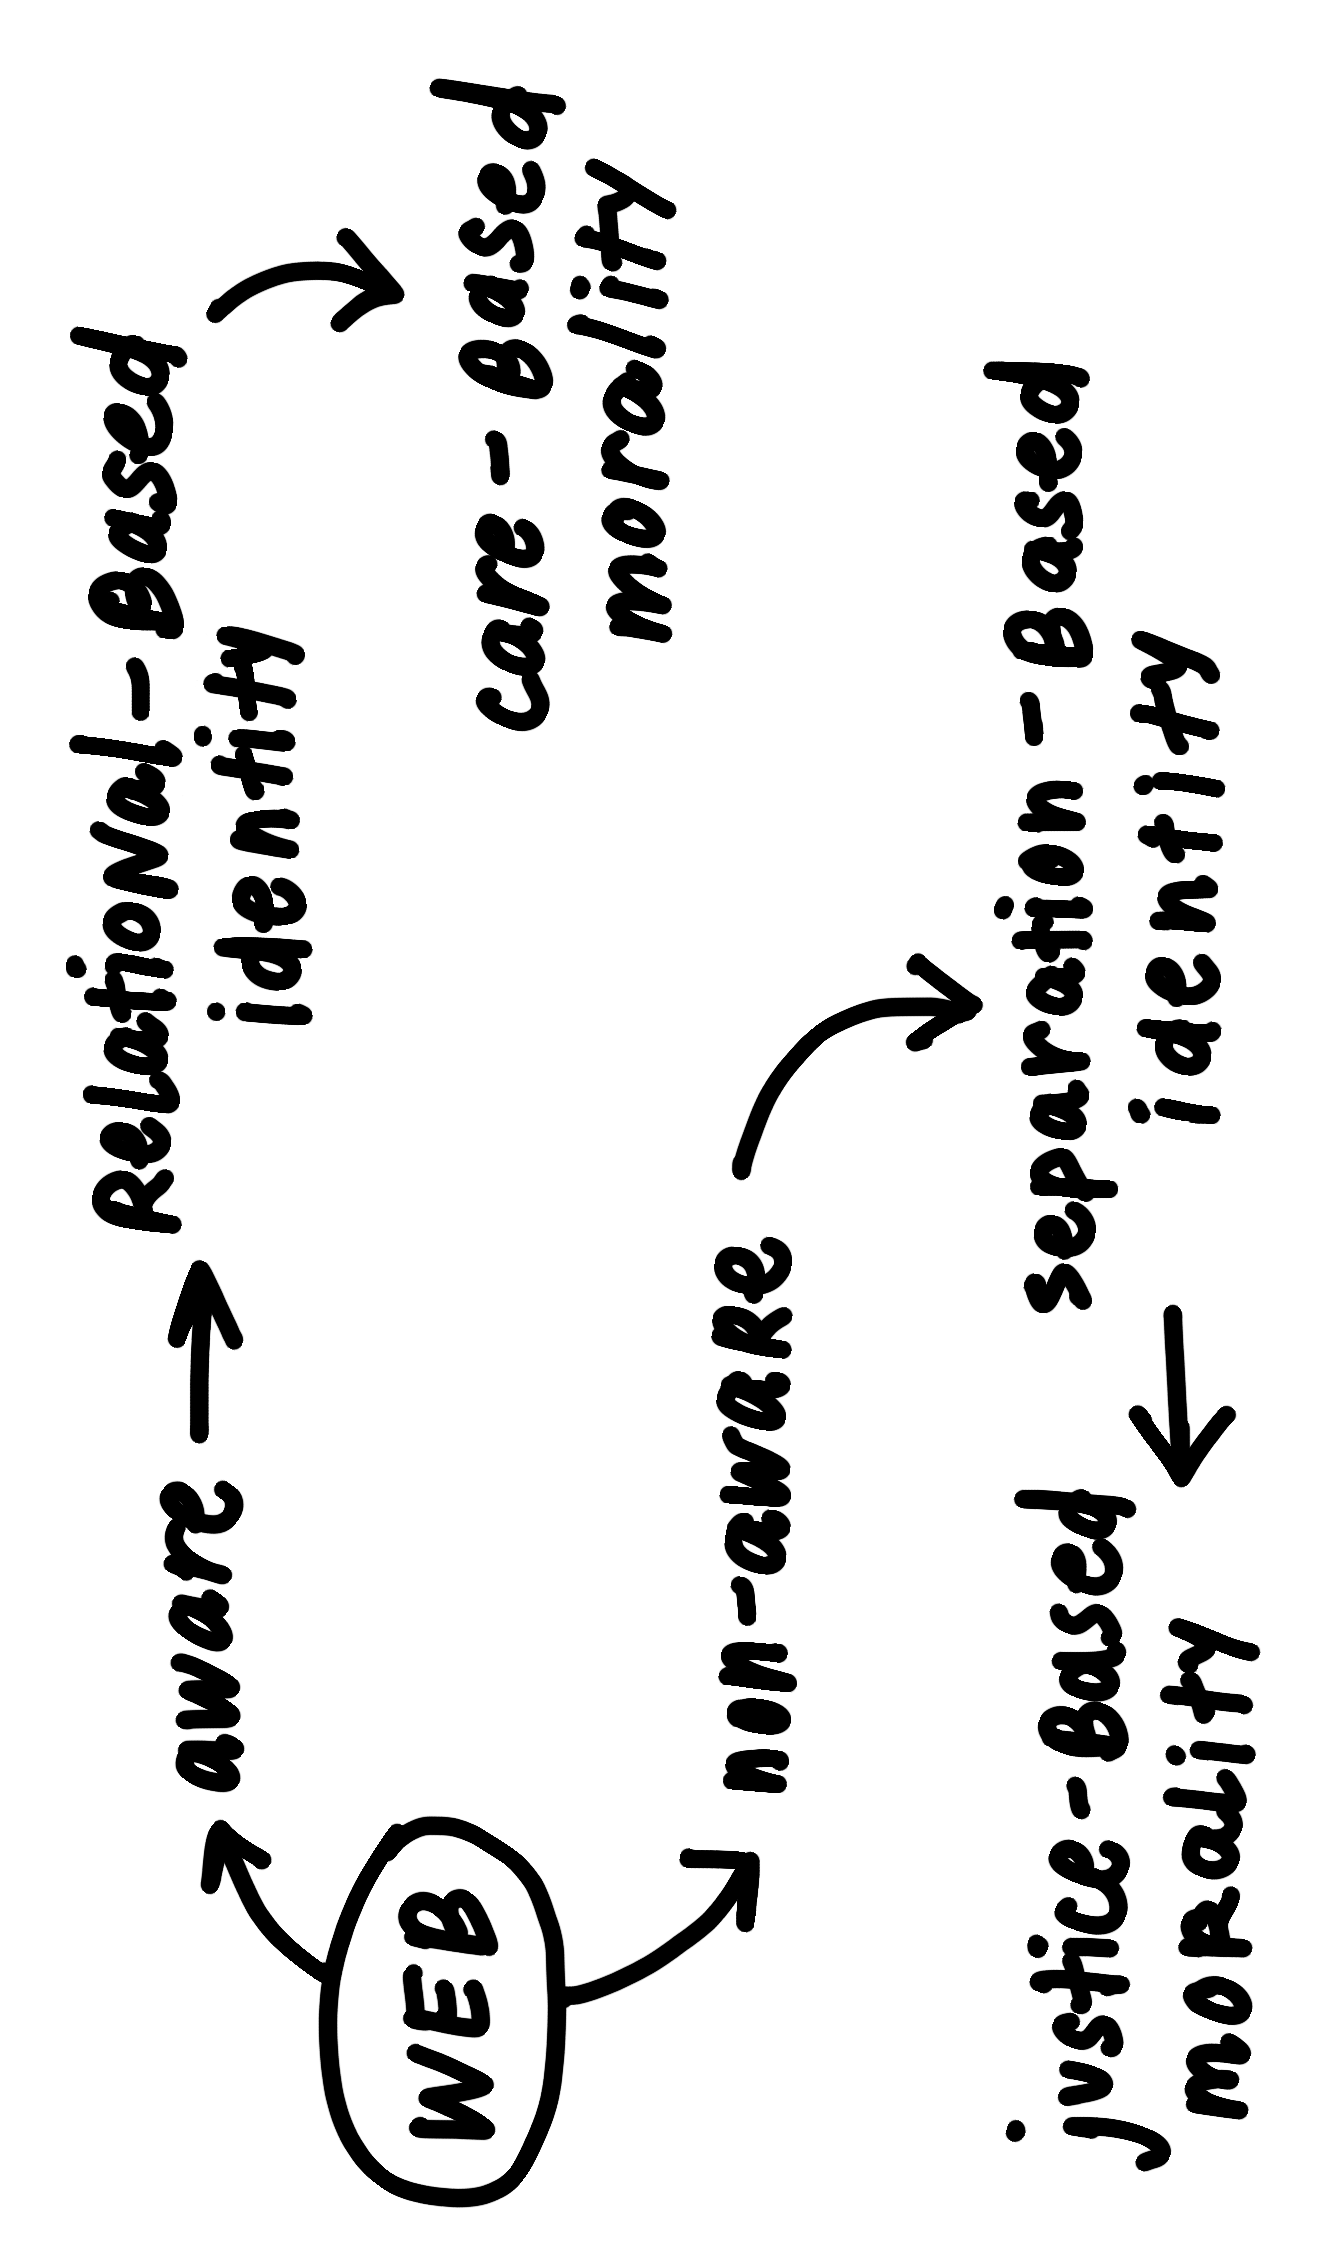 WEB
aware
Relational-Based
identity
care-Based
morality
non-aware
separation-Based
identity
justice-Based
morality